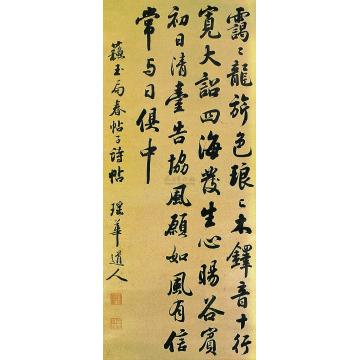 靄〻龍旂色琅〻木鐸音十行
寬大詔四海發生心暘谷賓
初日清臺告協風願如風有信
常与日俱中
蘇玉局春帖子詩帖 瑶華道人